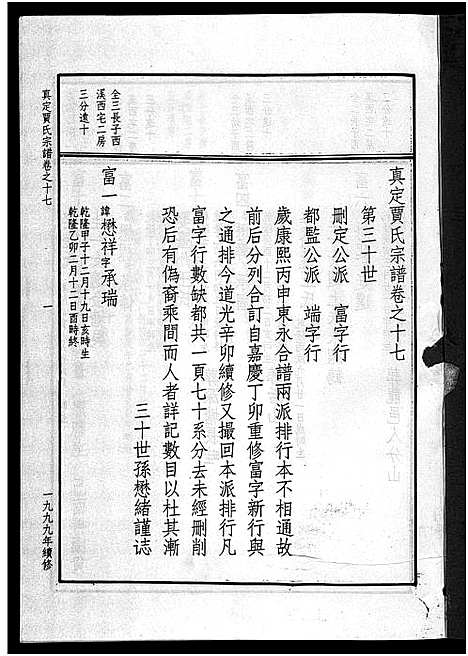 真定賈氏宗譜卷之十七
第三十世
刪定公派　富字行
都監公派　端字行
歲康熙丙申東永合譜兩派排行本不相通故
前后分列合訂自嘉慶丁卯重修富字新行與
之通排今道光辛卯續修又撮回本派排行凡
富字行數缺都共一頁七十系分去未經刪削
恐后有偽裔乘間而人者詳記數目以杜其漸
三十世孫懋緒謹志
全三長子西
溪西宅二房
三分遠十
富一諱懋祥字承瑞
乾隆甲子十二月十九日亥時生
乾隆乙卯二月十二日酉時終
真定賈氏宗譜卷之十七
一
一九九九年續修